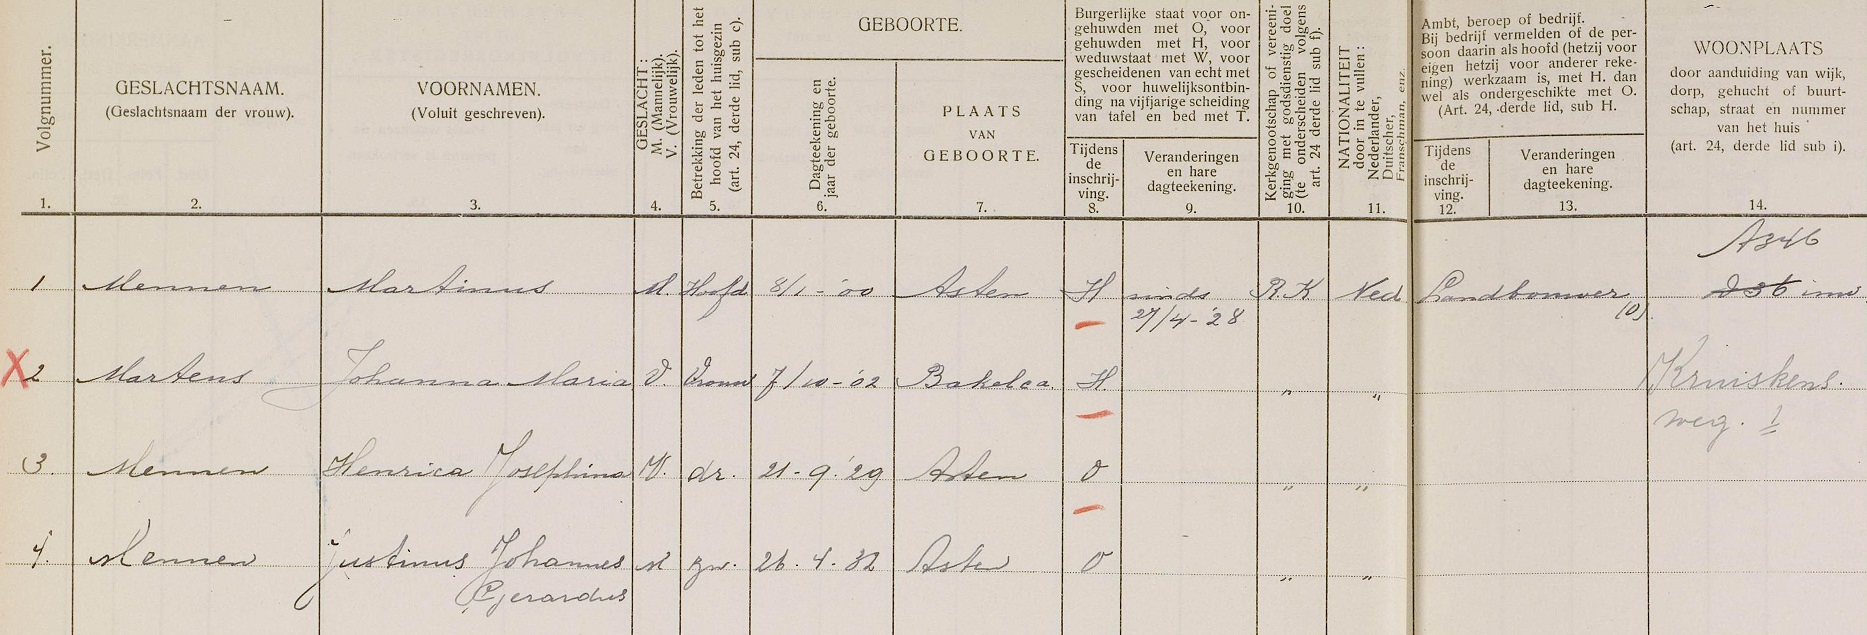 Volgnummer.
1.
GESLACHTSNAAM.
(Geslachtsnaam der vrouw).
2.
VOORNAMEN.
(Voluit geschreven).
3.
GESLACHT:
M. (Mannelijk).
V. (Vrouwelijk).
4.
Betrekking der leden tot het
hoofd van het huisgezin
(art. 24, derde lid, sub c).
5.
GEBOORTE.
Dagteekening en
jaar der geboorte.
6.
PLAATS
VAN
GEBOORTE.
7.
Burgerlijke staat voor on-
gehuwden met O, voor
gehuwden met H, voor
weduwstaat met W, voor
gescheidenen van echt met
S, voor huwelijksontbin-
ding na vijfjarige scheiding
van tafel en bed met T.
Tijdens
de
inschrij-
ving.
8.
Veranderingen
en hare
dagteekening.
9.
Kerkgenootschap of vereeni-
ging met godsdienstig doel
(te onderscheiden volgens
art. 24 derde lid sub f).
10.
NATIONALITEIT
door in te vullen:
Nederlander,
Duitscher,
Franschman, enz.
11.
Ambt, beroep of bedrijf.
Bij bedrijf vermelden of de per-
soon daarin als hoofd (hetzij voor
eigen hetzij voor anderer reke-
ning) werkzaam is, met H. dan
wel als ondergeschikte met O.
(Art. 24, derde lid, sub H.
Tijdens
de
inschrij-
ving.
12.
Veranderingen
en hare
dagteekening.
13.
WOONPLAATS
door aanduiding van wijk,
dorp, gehucht of buurt-
schap, straat en nummer
van het huis
(art. 24, derde lid sub i).
14.
A346
1 Mennen Martinus M. Hoofd 8/1-'00 Asten H sinds R.K Ned Landbouwer
27/4-'28 (O)
X 2 Martens Johanna Maria V. Vrouw 7/10-'02 Bakel ca. H " " Kruiskens.
weg. 1
3. Mennen Henrica Josephina V. dr. 21-9-'29 Asten O " "
4. Mennen Justinus Johannes M zn. 26.4-32 Asten O " "
Gerardus